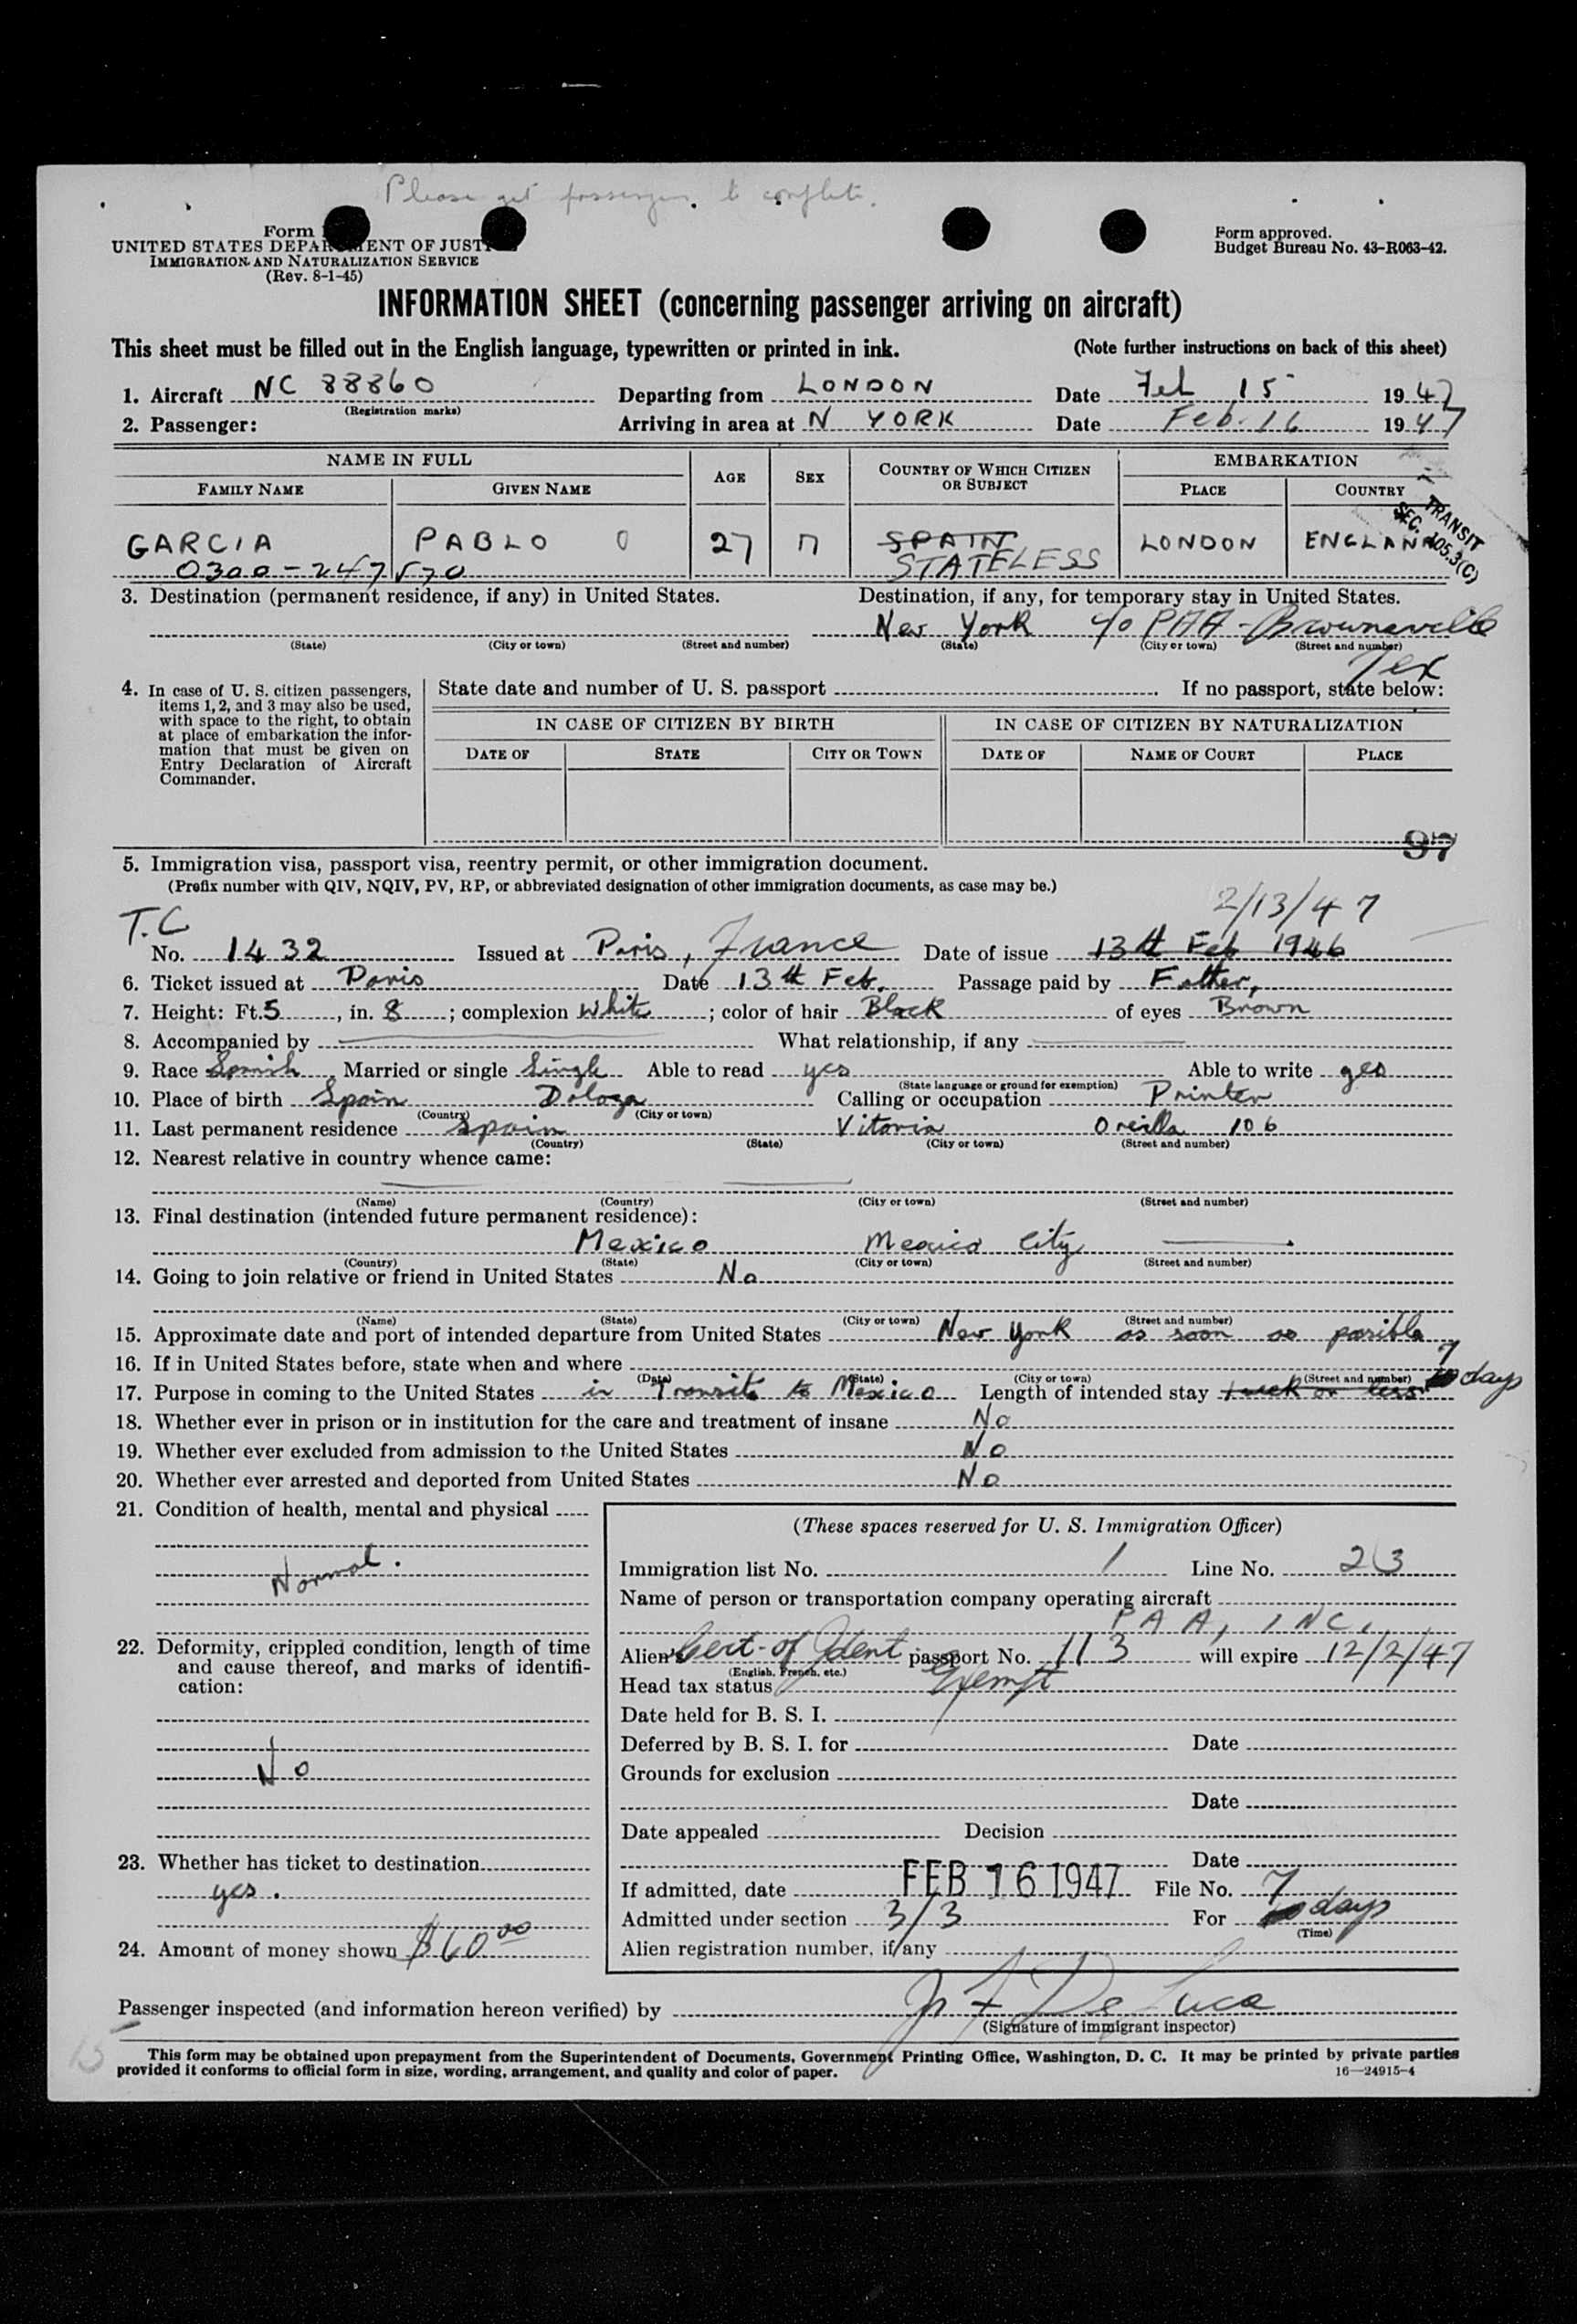 Please get passenger to complete.
Form
UNITED STATES DEPARTMENT OF JUSTICE
IMMIGRATION AND NATURALIZATION SERVICE
(Rev. 8-1-45)
Form approved.
Budget Bureau No. 43-R063-42.
INFORMATION SHEET (concerning passenger arriving on aircraft)
This sheet must be filled out in the English language, typewritten or printed in ink. (Note further instructions on back of this sheet)
1. Aircraft NC 88860 Departing from LONDON Date Feb 15 1947
(Registration marks)
2. Passenger: Arriving in area at N YORK Date Feb. 16 1947
NAME IN FULL AGE SEX COUNTRY OF WHICH CITIZEN OR SUBJECT EMBARKATION
FAMILY NAME GIVEN NAME PLACE COUNTRY
TRANSIT
SEC. 105.3(C)
GARCIA PABLO O 27 M SPAIN LONDON ENGLAND
0300-247570 STATELESS
3. Destination (permanent residence, if any) in United States. Destination, if any, for temporary stay in United States.
New York c/o PAA - Brownsville
(State) (City or town) (Street and number) (State) (City or town) (Street and number)
Tex
4. In case of U. S. citizen passengers, items 1, 2, and 3 may also be used, with space to the right, to obtain at place of embarkation the information that must be given on Entry Declaration of Aircraft Commander.
State date and number of U. S. passport If no passport, state below:
IN CASE OF CITIZEN BY BIRTH IN CASE OF CITIZEN BY NATURALIZATION
DATE OF STATE CITY OR TOWN DATE OF NAME OF COURT PLACE
97
5. Immigration visa, passport visa, reentry permit, or other immigration document.
(Prefix number with QIV, NQIV, PV, RP, or abbreviated designation of other immigration documents, as case may be.)
T.C 2/13/47
No. 1432 Issued at Paris, France Date of issue 13th Feb 1946
6. Ticket issued at Paris Date 13th Feb. Passage paid by Father,
7. Height: Ft. 5, in. 8; complexion White; color of hair Black of eyes Brown
8. Accompanied by What relationship, if any
9. Race Spanish Married or single Single Able to read yes Able to write yes
(State language or ground for exemption)
10. Place of birth Spain Dologa Calling or occupation Printer
(Country) (City or town)
11. Last permanent residence Spain Vitoria 106
(Country) (State) (City or town) (Street and number)
12. Nearest relative in country whence came:
(Name) (Country) (City or town) (Street and number)
13. Final destination (intended future permanent residence):
Mexico Mexico City
(Country) (State) (City or town) (Street and number)
14. Going to join relative or friend in United States No
(Name) (State) (City or town) (Street and number)
15. Approximate date and port of intended departure from United States New York as soon as posible
16. If in United States before, state when and where
(Date) (State) (City or town) (Street and number)
17. Purpose in coming to the United States in Transit to Mexico Length of intended stay 1 week or less 7 days
18. Whether ever in prison or in institution for the care and treatment of insane No
19. Whether ever excluded from admission to the United States No
20. Whether ever arrested and deported from United States No
21. Condition of health, mental and physical
Normal.
22. Deformity, crippled condition, length of time and cause thereof, and marks of identification:
No
23. Whether has ticket to destination
yes.
24. Amount of money shown $60.00
(These spaces reserved for U. S. Immigration Officer)
Immigration list No. 1 Line No. 23
Name of person or transportation company operating aircraft
PAA, INC.
Alien's Cert. of Ident passport No. 113 will expire 12/2/47
(English, French, etc.)
Head tax status Exempt
Date held for B. S. I.
Deferred by B. S. I. for Date
Grounds for exclusion
Date
Date appealed Decision
Date
If admitted, date FEB 16 1947 File No.
Admitted under section 3/3 For 7 days
(Time)
Alien registration number, if any
Passenger inspected (and information hereon verified) by De Luca
(Signature of immigrant inspector)
15
This form may be obtained upon prepayment from the Superintendent of Documents, Government Printing Office, Washington, D. C. It may be printed by private parties
provided it conforms to official form in size, wording, arrangement, and quality and color of paper. 16—24915-4